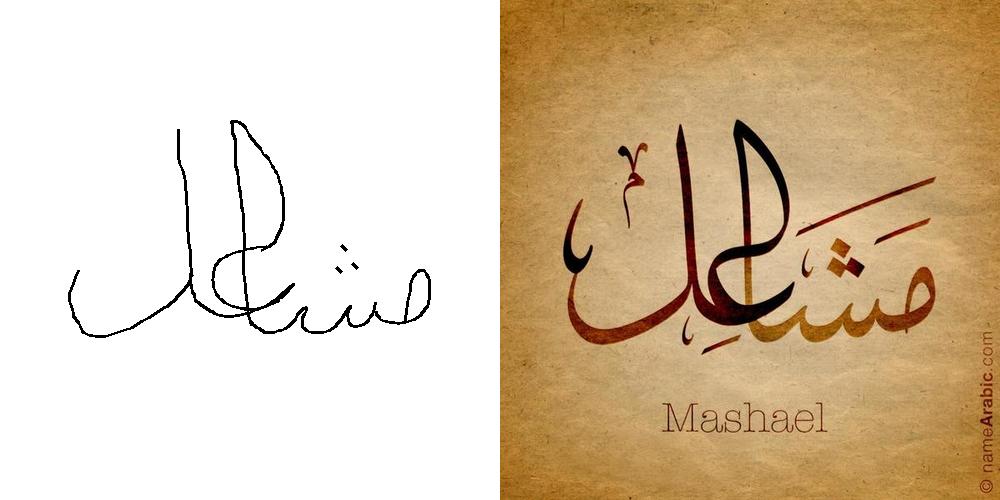 مشاعل
مَشَاعِل
Mashael
© nameArabic.com